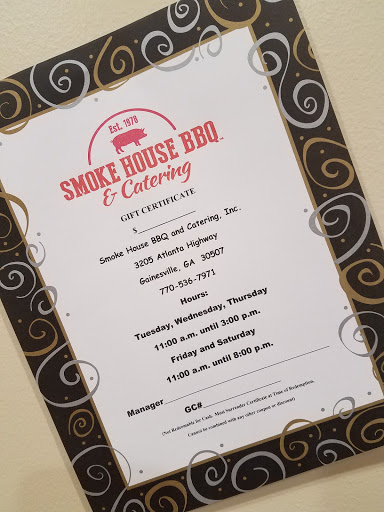 Est. 1978
SMOKE HOUSE BBQ
& Catering
GIFT CERTIFICATE
$____________
Smoke House BBQ and Catering, Inc.
3205 Atlanta Highway
Gainesville, GA 30507
770-536-7971
Hours:
Tuesday, Wednesday, Thursday
11:00 a.m. until 3:00 p.m.
Friday and Saturday
11:00 a.m. until 8:00 p.m.
Manager____________________
GC#____________________
(Not Redeemable for Cash. Must Surrender Certificate at Time of Redemption.
Cannot be combined with any other coupon or discount)